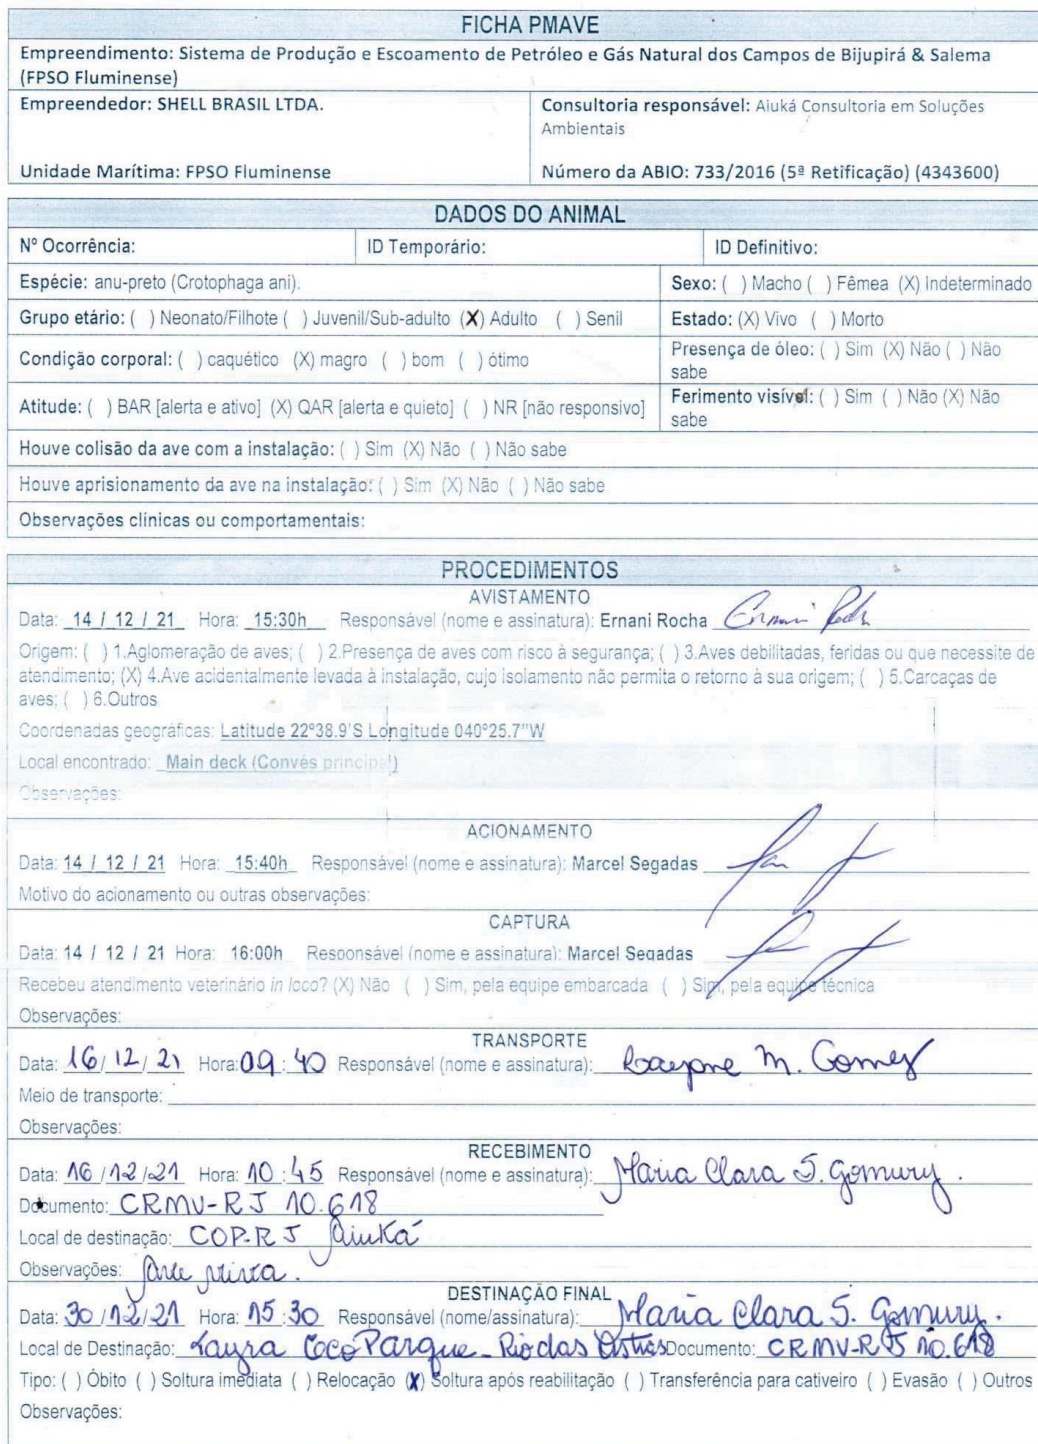 FICHA PMAVE
Empreendimento: Sistema de Produção e Escoamento de Petróleo e Gás Natural dos Campos de Bijupirá & Salema
(FPSO Fluminense)
Empreendedor: SHELL BRASIL LTDA.
Consultoria responsável: Aiuká Consultoria em Soluções
Ambientais
Unidade Marítima: FPSO Fluminense
Número da ABIO: 733/2016 (5ª Retificação) (4343600)
DADOS DO ANIMAL
Nº Ocorrência: ID Temporário: ID Definitivo:
Espécie: anu-preto (Crotophaga ani). Sexo: ( ) Macho ( ) Fêmea (X) Indeterminado
Grupo etário: ( ) Neonato/Filhote ( ) Juvenil/Sub-adulto (X) Adulto ( ) Senil Estado: (X) Vivo ( ) Morto
Condição corporal: ( ) caquético (X) magro ( ) bom ( ) ótimo
Presença de óleo: ( ) Sim (X) Não ( ) Não
sabe
Atitude: ( ) BAR [alerta e ativo] (X) QAR [alerta e quieto] ( ) NR [não responsivo]
Ferimento visível: ( ) Sim ( ) Não (X) Não
sabe
Houve colisão da ave com a instalação: ( ) Sim (X) Não ( ) Não sabe
Houve aprisionamento da ave na instalação: ( ) Sim (X) Não ( ) Não sabe
Observações clínicas ou comportamentais:
PROCEDIMENTOS
AVISTAMENTO
Data: 14 / 12 / 21 Hora: 15:30h Responsável (nome e assinatura): Ernani Rocha
Origem: ( ) 1.Aglomeração de aves; ( ) 2.Presença de aves com risco à segurança; ( ) 3.Aves debilitadas, feridas ou que necessite de
atendimento; (X) 4.Ave acidentalmente levada à instalação, cujo isolamento não permita o retorno à sua origem; ( ) 5.Carcaças de
aves; ( ) 6.Outros
Coordenadas geográficas: Latitude 22º38.9'S Longitude 040º25.7"W
Local encontrado: Main deck (Convés principal)
Observações:
ACIONAMENTO
Data: 14 / 12 / 21 Hora: 15:40h Responsável (nome e assinatura): Marcel Segadas
Motivo do acionamento ou outras observações:
CAPTURA
Data: 14 / 12 / 21 Hora: 16:00h Responsável (nome e assinatura): Marcel Segadas
Recebeu atendimento veterinário in loco? (X) Não ( ) Sim, pela equipe embarcada ( ) Sim, pela equipe técnica
Observações:
TRANSPORTE
Data: 16/12/21 Hora: 09:40 Responsável (nome e assinatura): M. Gomes
Meio de transporte:
Observações:
RECEBIMENTO
Data: 16/12/21 Hora: 10:45 Responsável (nome e assinatura): Maria Clara S.
Documento: CRMV-RJ 10.618
Local de destinação: COP-RJ Aiuká
Observações:
DESTINAÇÃO FINAL
Data: 30/12/21 Hora: 15:30 Responsável (nome/assinatura): Maria Clara S.
Local de Destinação: Parque - Rio das Ostras Documento: CRMV-RJ 10.618
Tipo: ( ) Óbito ( ) Soltura imediata ( ) Relocação (X) Soltura após reabilitação ( ) Transferência para cativeiro ( ) Evasão ( ) Outros
Observações: